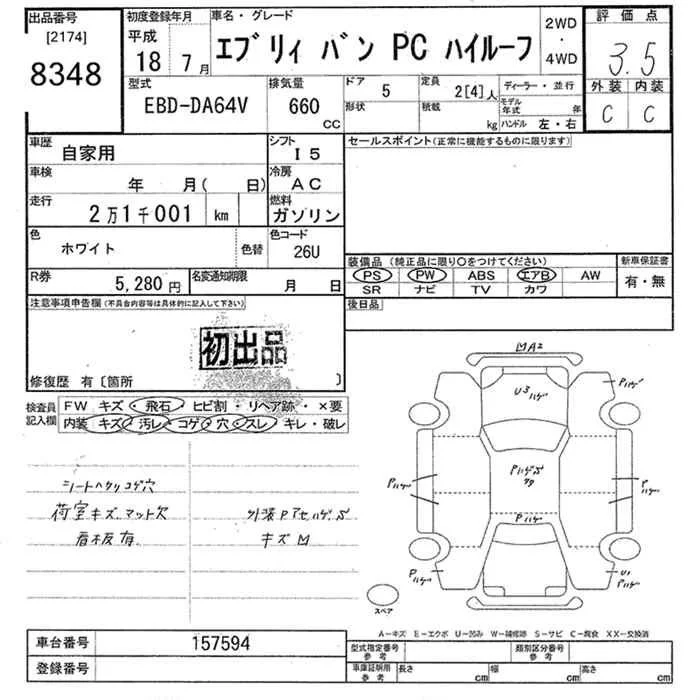 出品番号
[2174]
8348
初度登録年月
平成
18 7月
車名・グレード
エブリィ バン PC ハイルーフ
2WD
・
4WD
評価点
3.5
外装 内装
C C
型式
EBD-DA64V
排気量
660
CC
ドア 5
形状
定員 2[4]人
積載 kg
ディーラー・並行
モデル年式 年
ハンドル 左・右
車歴 自家用
シフト I5
車検 年 月( 日)
冷房 AC
走行 2万1千001 km
燃料 ガソリン
色 ホワイト 色替
色コード 26U
R券 5,280円
名変通知期限 月 日
セールスポイント(正常に機能するものに限ります)
装備品 (純正品に限り○をつけてください)
PS PW ABS エアB AW
SR ナビ TV カワ
新車保証書
有・無
後日品
注意事項申告欄(不具合内容等は具体的に記入して下さい)
初出品
修復歴 有〔箇所 〕
検査員記入欄
FW キズ・飛石・ヒビ割・リペア跡・×要
内装 キズ・汚レ・コゲ・穴・スレ・キレ・破レ
シートヘタリコゲ穴
荷室キズ.マット欠
看板有
キズM
MA2
U3ハゲ
Pハゲ
Pハゲ
Pハゲ
Pハゲ
Pハゲ
U1
Pハゲ
スペア
A-キズ E-エクボ U-凹み W-補修跡 S-サビ C-腐食 XX-交換済
車台番号 157594
登録番号
型式指定番号
参考
類別区分番号
参考
車庫証明用
参考
長さ cm
幅 cm
高さ cm